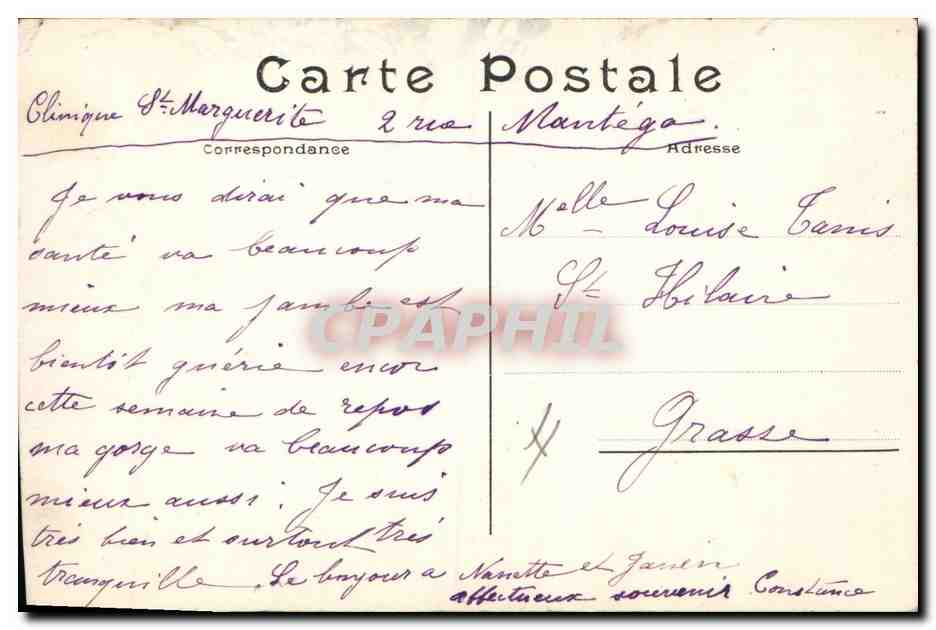 Carte Postale
Clinique Ste Marguerite 2 rue Mantéga.
Correspondance
Je vous dirai que ma
santé va beaucoup
mieux ma jambe est
bientôt guérie encor
cette semaine de repos
ma gorge va beaucoup
mieux aussi. Je suis
très bien et surtout très
tranquille. Le bonjour a Nanette et
affectueux souvenir Constance
Adresse
Melle Louise Tanis
St Hilaire
Grasse
CPAPHIL